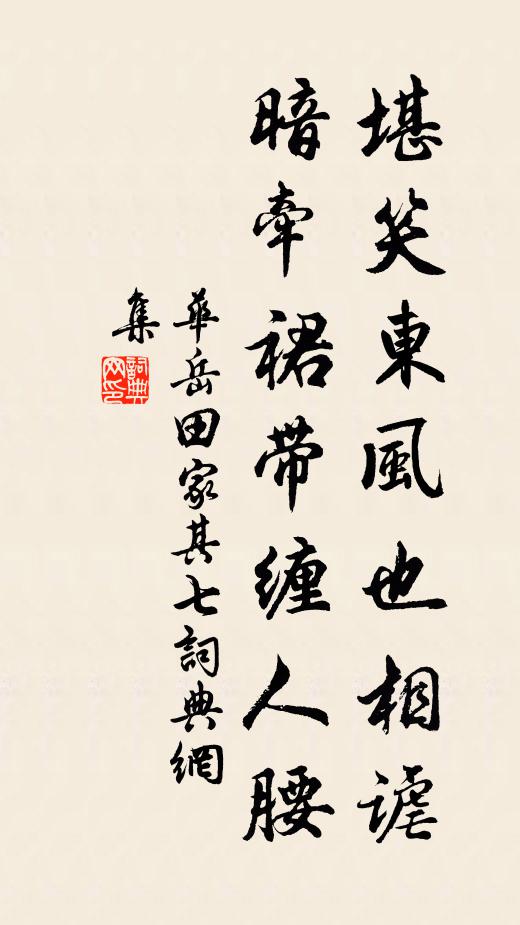 堪笑東風也相謔
暗牽裙帶纏人腰
華岳田家其七詞典網
集
詞典
网印